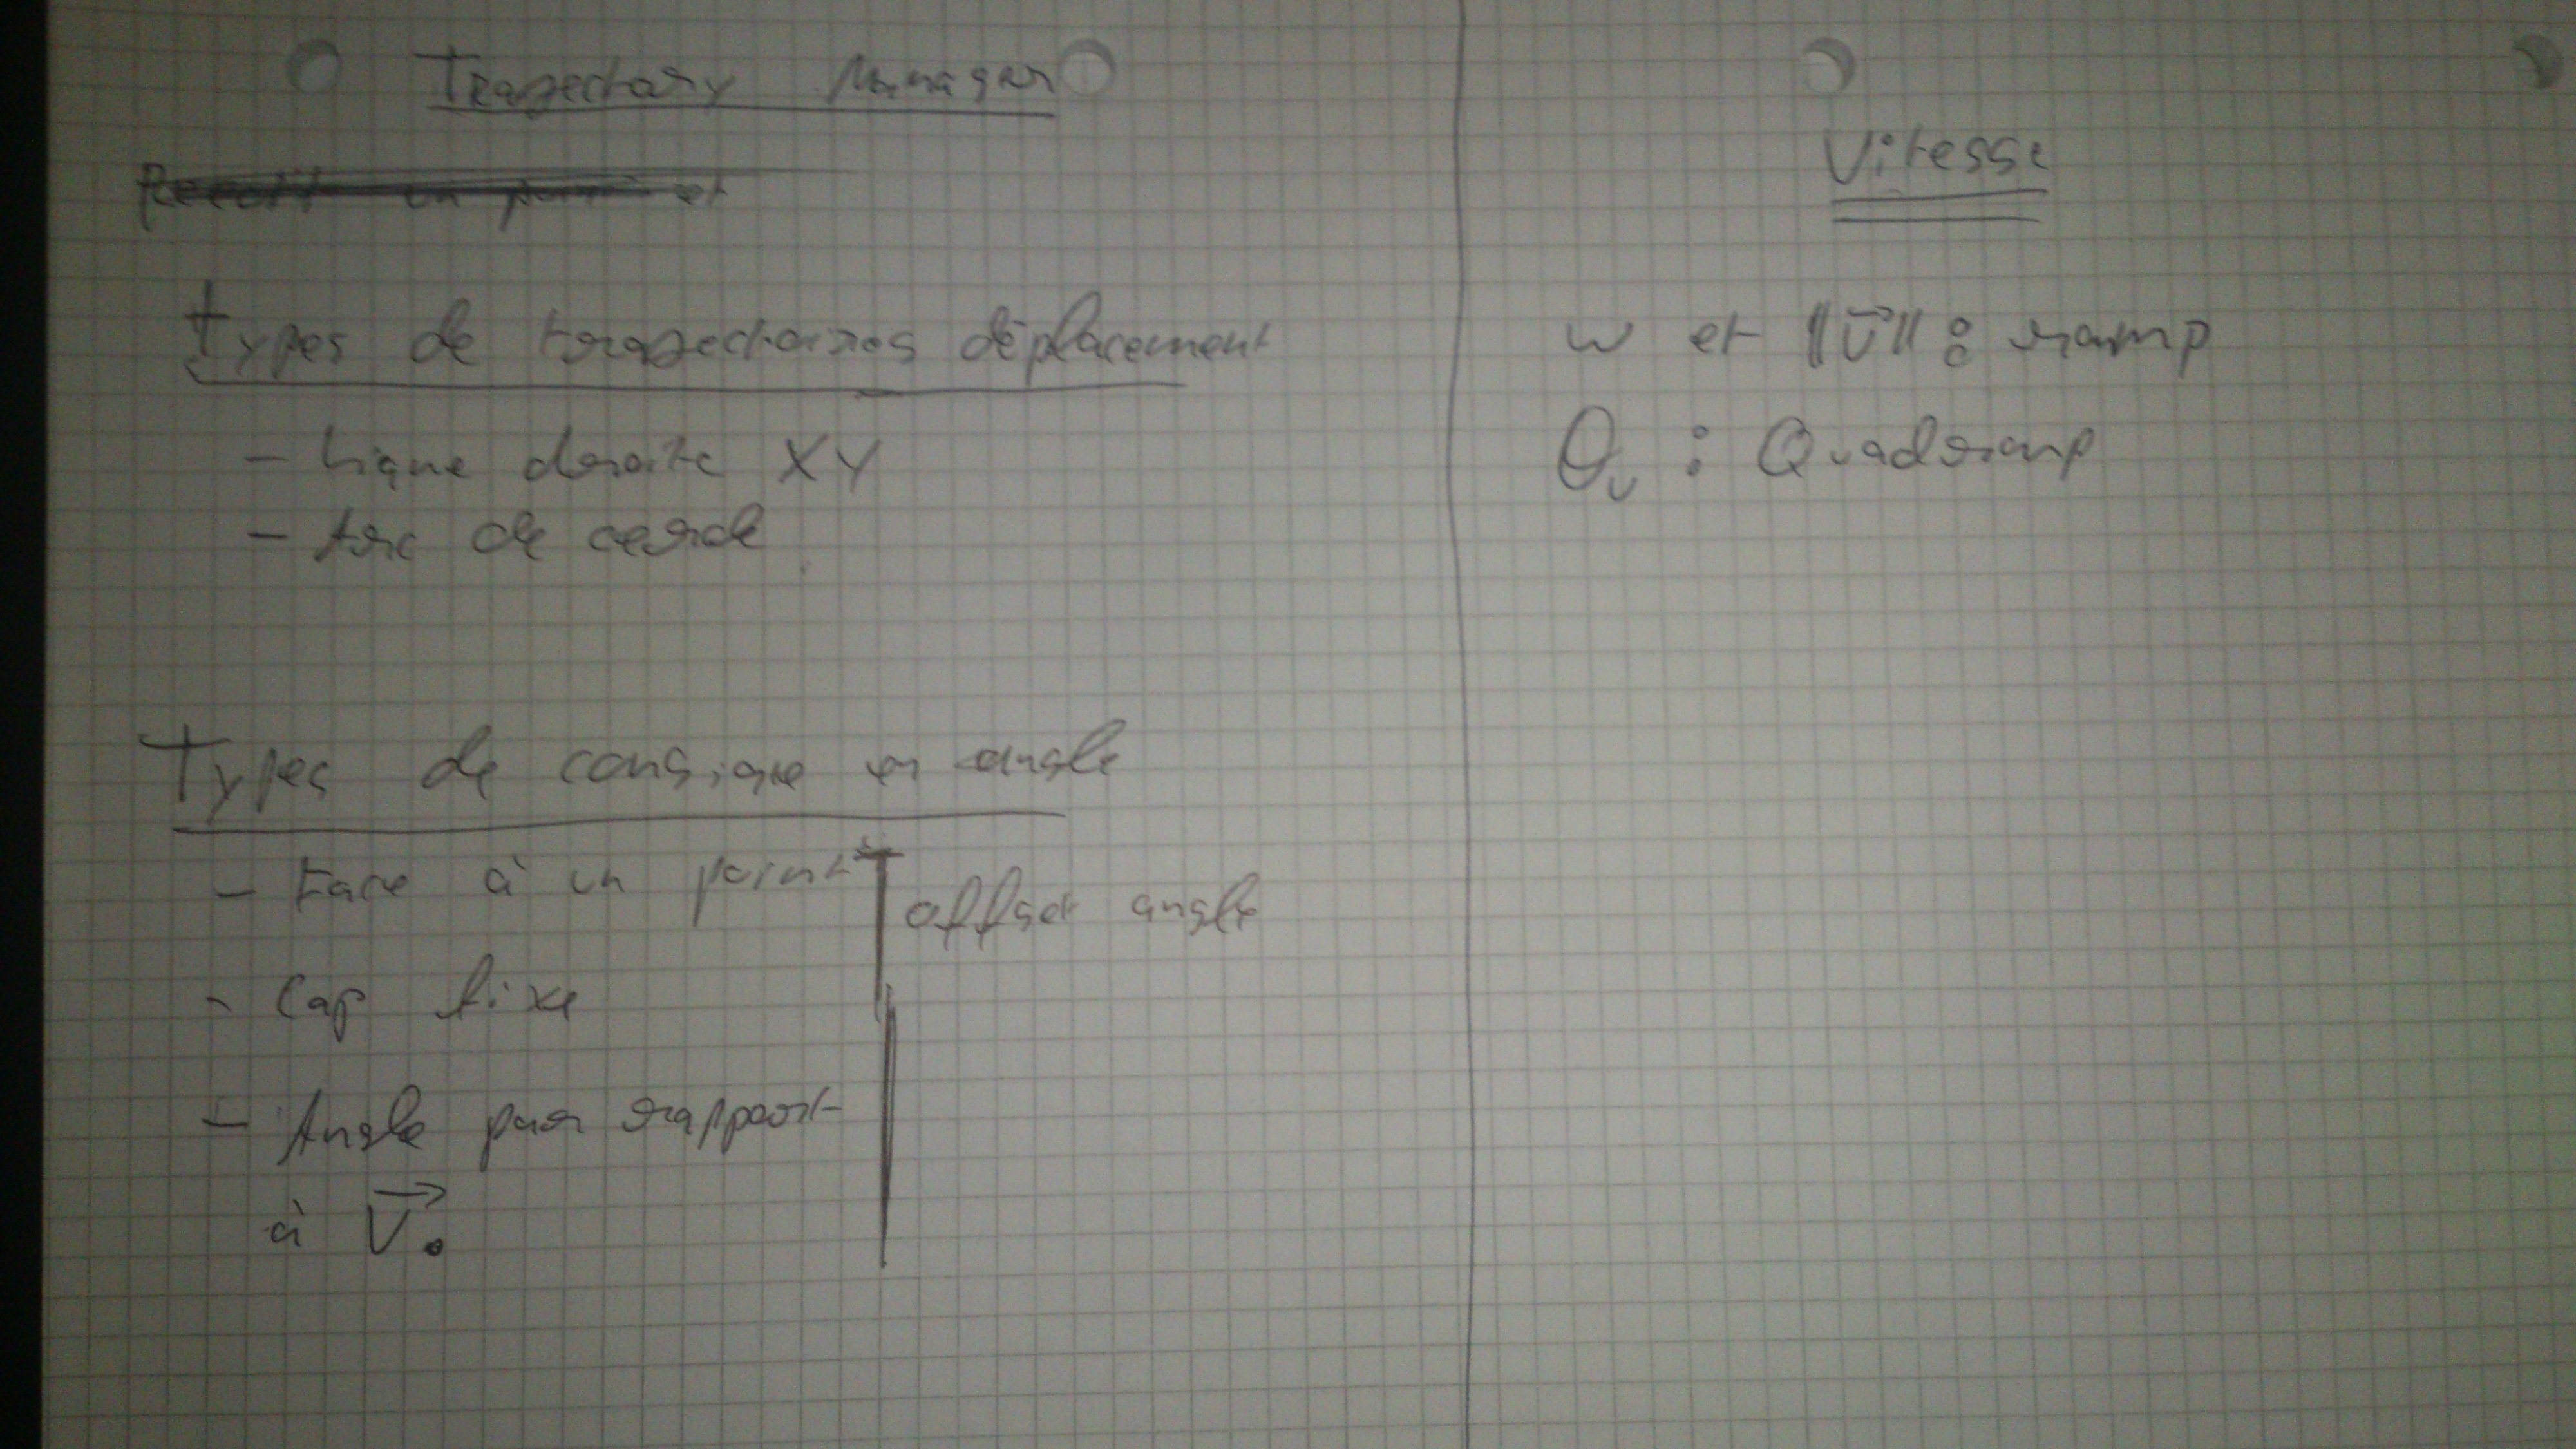 Trajectory Manager
Types de trajectoires déplacement
- Ligne droite XY
- Arc de cercle
Types de consigne en angle
- Face à un point
offset angle
- Cap fixe
- Angle par rapport
à V.
Vitesse
w et ||V|| : ramp
θv : Quadramp